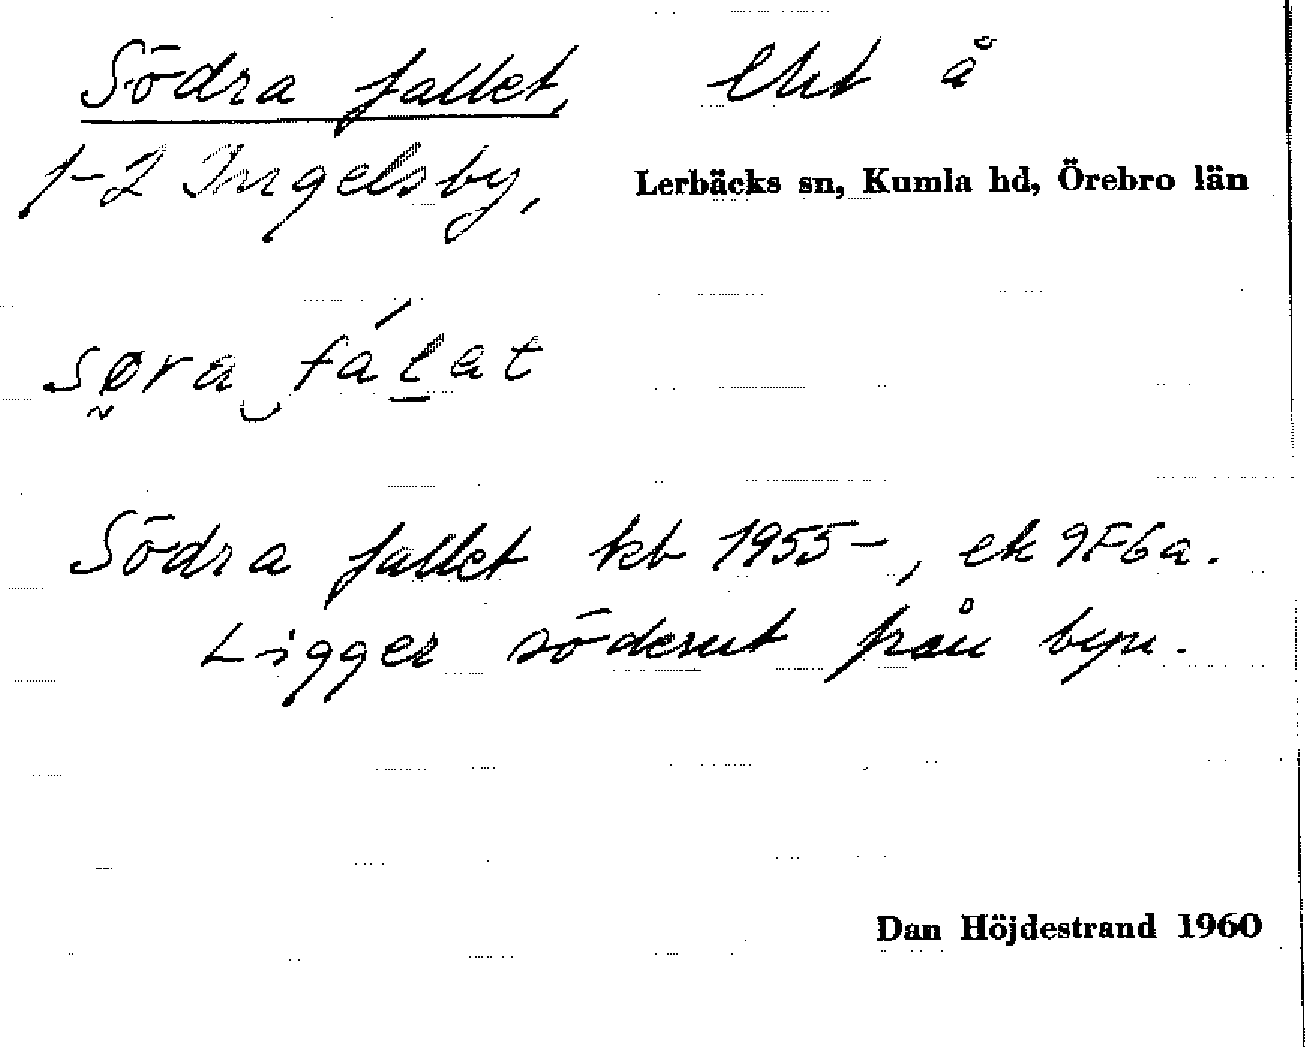 Södra fallet, lht å
1-2 Ingelsby, Lerbäcks sn, Kumla hd, Örebro län
Södra fallet kb 1955-, ek 9F6a.
Ligger söderut från byn.
Dan Höjdestrand 1960